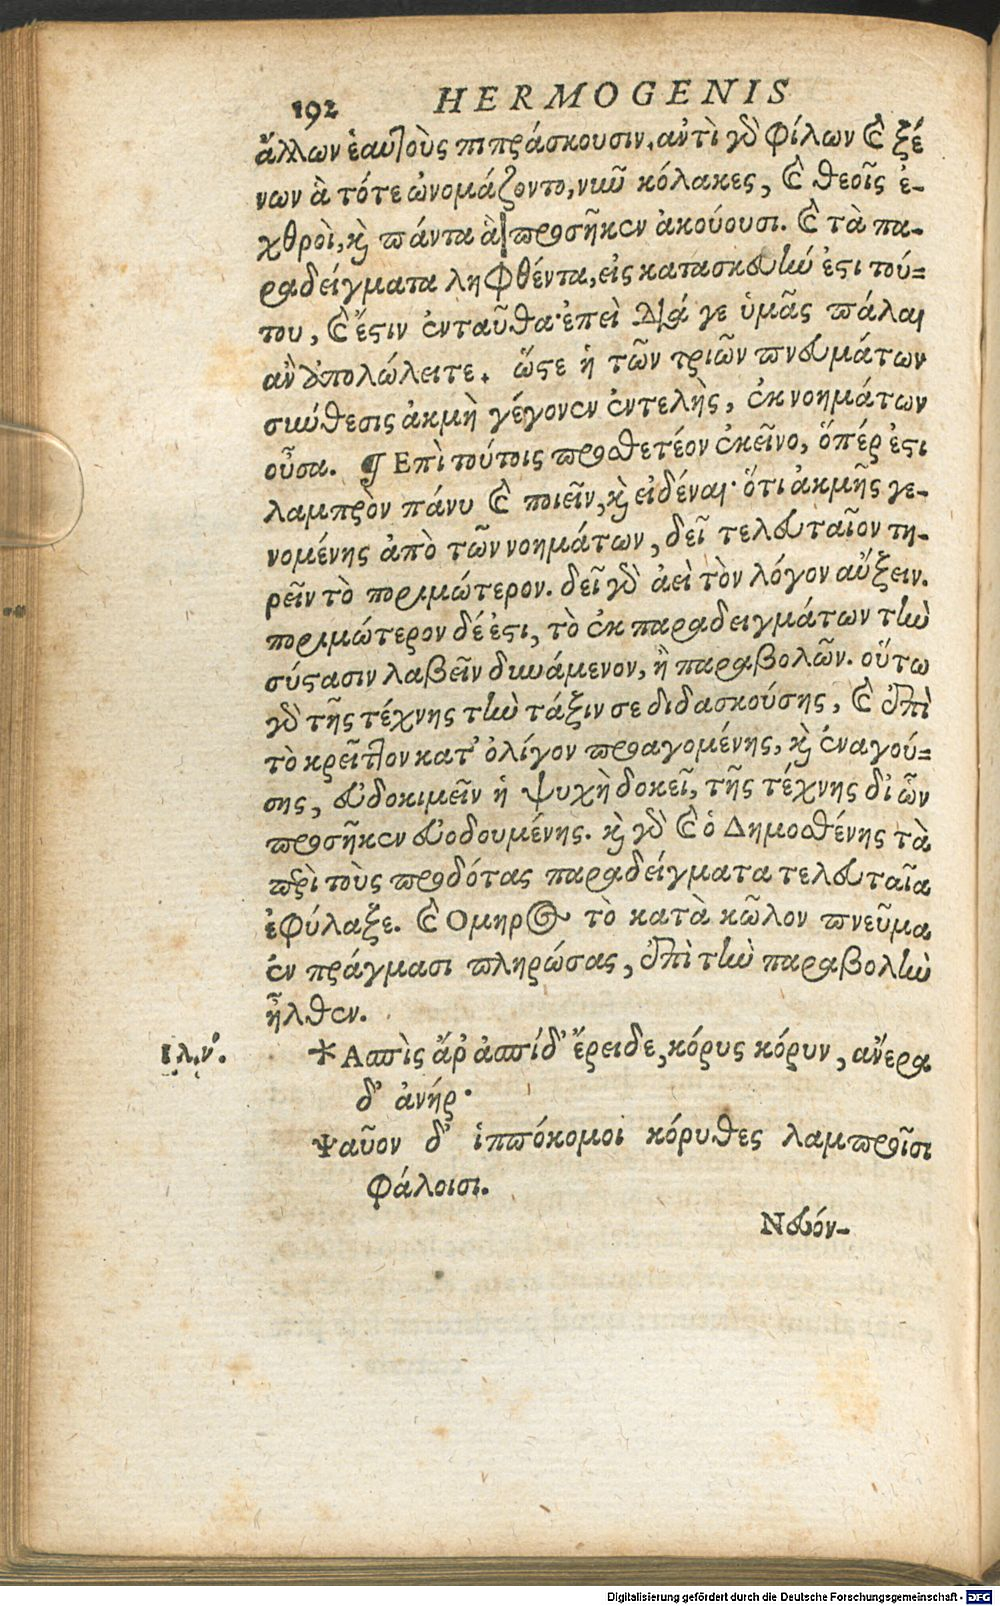 192 HERMOGENIS
ἄλλων ἑαυτοὺς πιπράσκουσιν. ἀντὶ γὰρ φίλων καὶ ξέ
νων ἃ τότε ὠνομάζοντο, νῦν κόλακες, καὶ θεοῖς ἐ-
χθροὶ, καὶ πάντα ἃ προσῆκεν ἀκούουσι. καὶ τὰ πα-
ραδείγματα ληφθέντα, εἰς κατασκευὴν ἐστι τού=
του, καὶ ἔστιν ἐνταῦθα· ἐπεὶ διά γε ὑμᾶς πάλαι
ἂν ἀπολώλειτε. ὥστε ἡ τῶν τριῶν πνευμάτων
σύνθεσις ἀκμὴ γέγονεν ἐντελὴς, ἐκ νοημάτων
οὖσα. ¶ Επὶ τούτοις προσθετέον ἐκεῖνο, ὅπέρ ἐστι
λαμπρὸν πάνυ καὶ ποιεῖν, καὶ εἰδέναι· ὅτι ἀκμῆς γε-
νομένης ἀπὸ τῶν νοημάτων, δεῖ τελευταῖον τη-
ρεῖν τὸ ποριμώτερον. δεῖ γὰρ ἀεὶ τὸν λόγον αὔξειν.
ποριμώτερον δέ ἐστι, τὸ ἐκ παραδειγμάτων τὴν
σύστασιν λαβεῖν δυνάμενον, ἢ παραβολῶν. οὕτω
γὰρ τῆς τέχνης τὴν τάξιν σε διδασκούσης, καὶ ἐπὶ
τὸ κρεῖττον κατ' ὀλίγον προαγομένης, καὶ ἐναγού=
σης, εὐδοκιμεῖν ἡ ψυχὴ δοκεῖ, τῆς τέχνης δι' ὧν
προσῆκεν εὐοδουμένης. καὶ γὰρ καὶ ὁ Δημοσθένης τὰ
περὶ τοὺς προδότας παραδείγματα τελευταῖα
ἐφύλαξε. καὶ Ομηρος τὸ κατὰ κῶλον πνεῦμα
ἐν πράγμασι πληρώσας, ἐπὶ τὴν παραβολὴν
ἦλθεν.
Ιλ. ν.
* Ασπὶς ἄρ' ἀσπίδ' ἔρειδε, κόρυς κόρυν, ἀνέρα
δ' ἀνήρ·
Ψαῦον δ' ἱππόκομοι κόρυθες λαμπροῖσι
φάλοισι.
Νευόν-
Digitalisierung gefördert durch die Deutsche Forschungsgemeinschaft - DFG